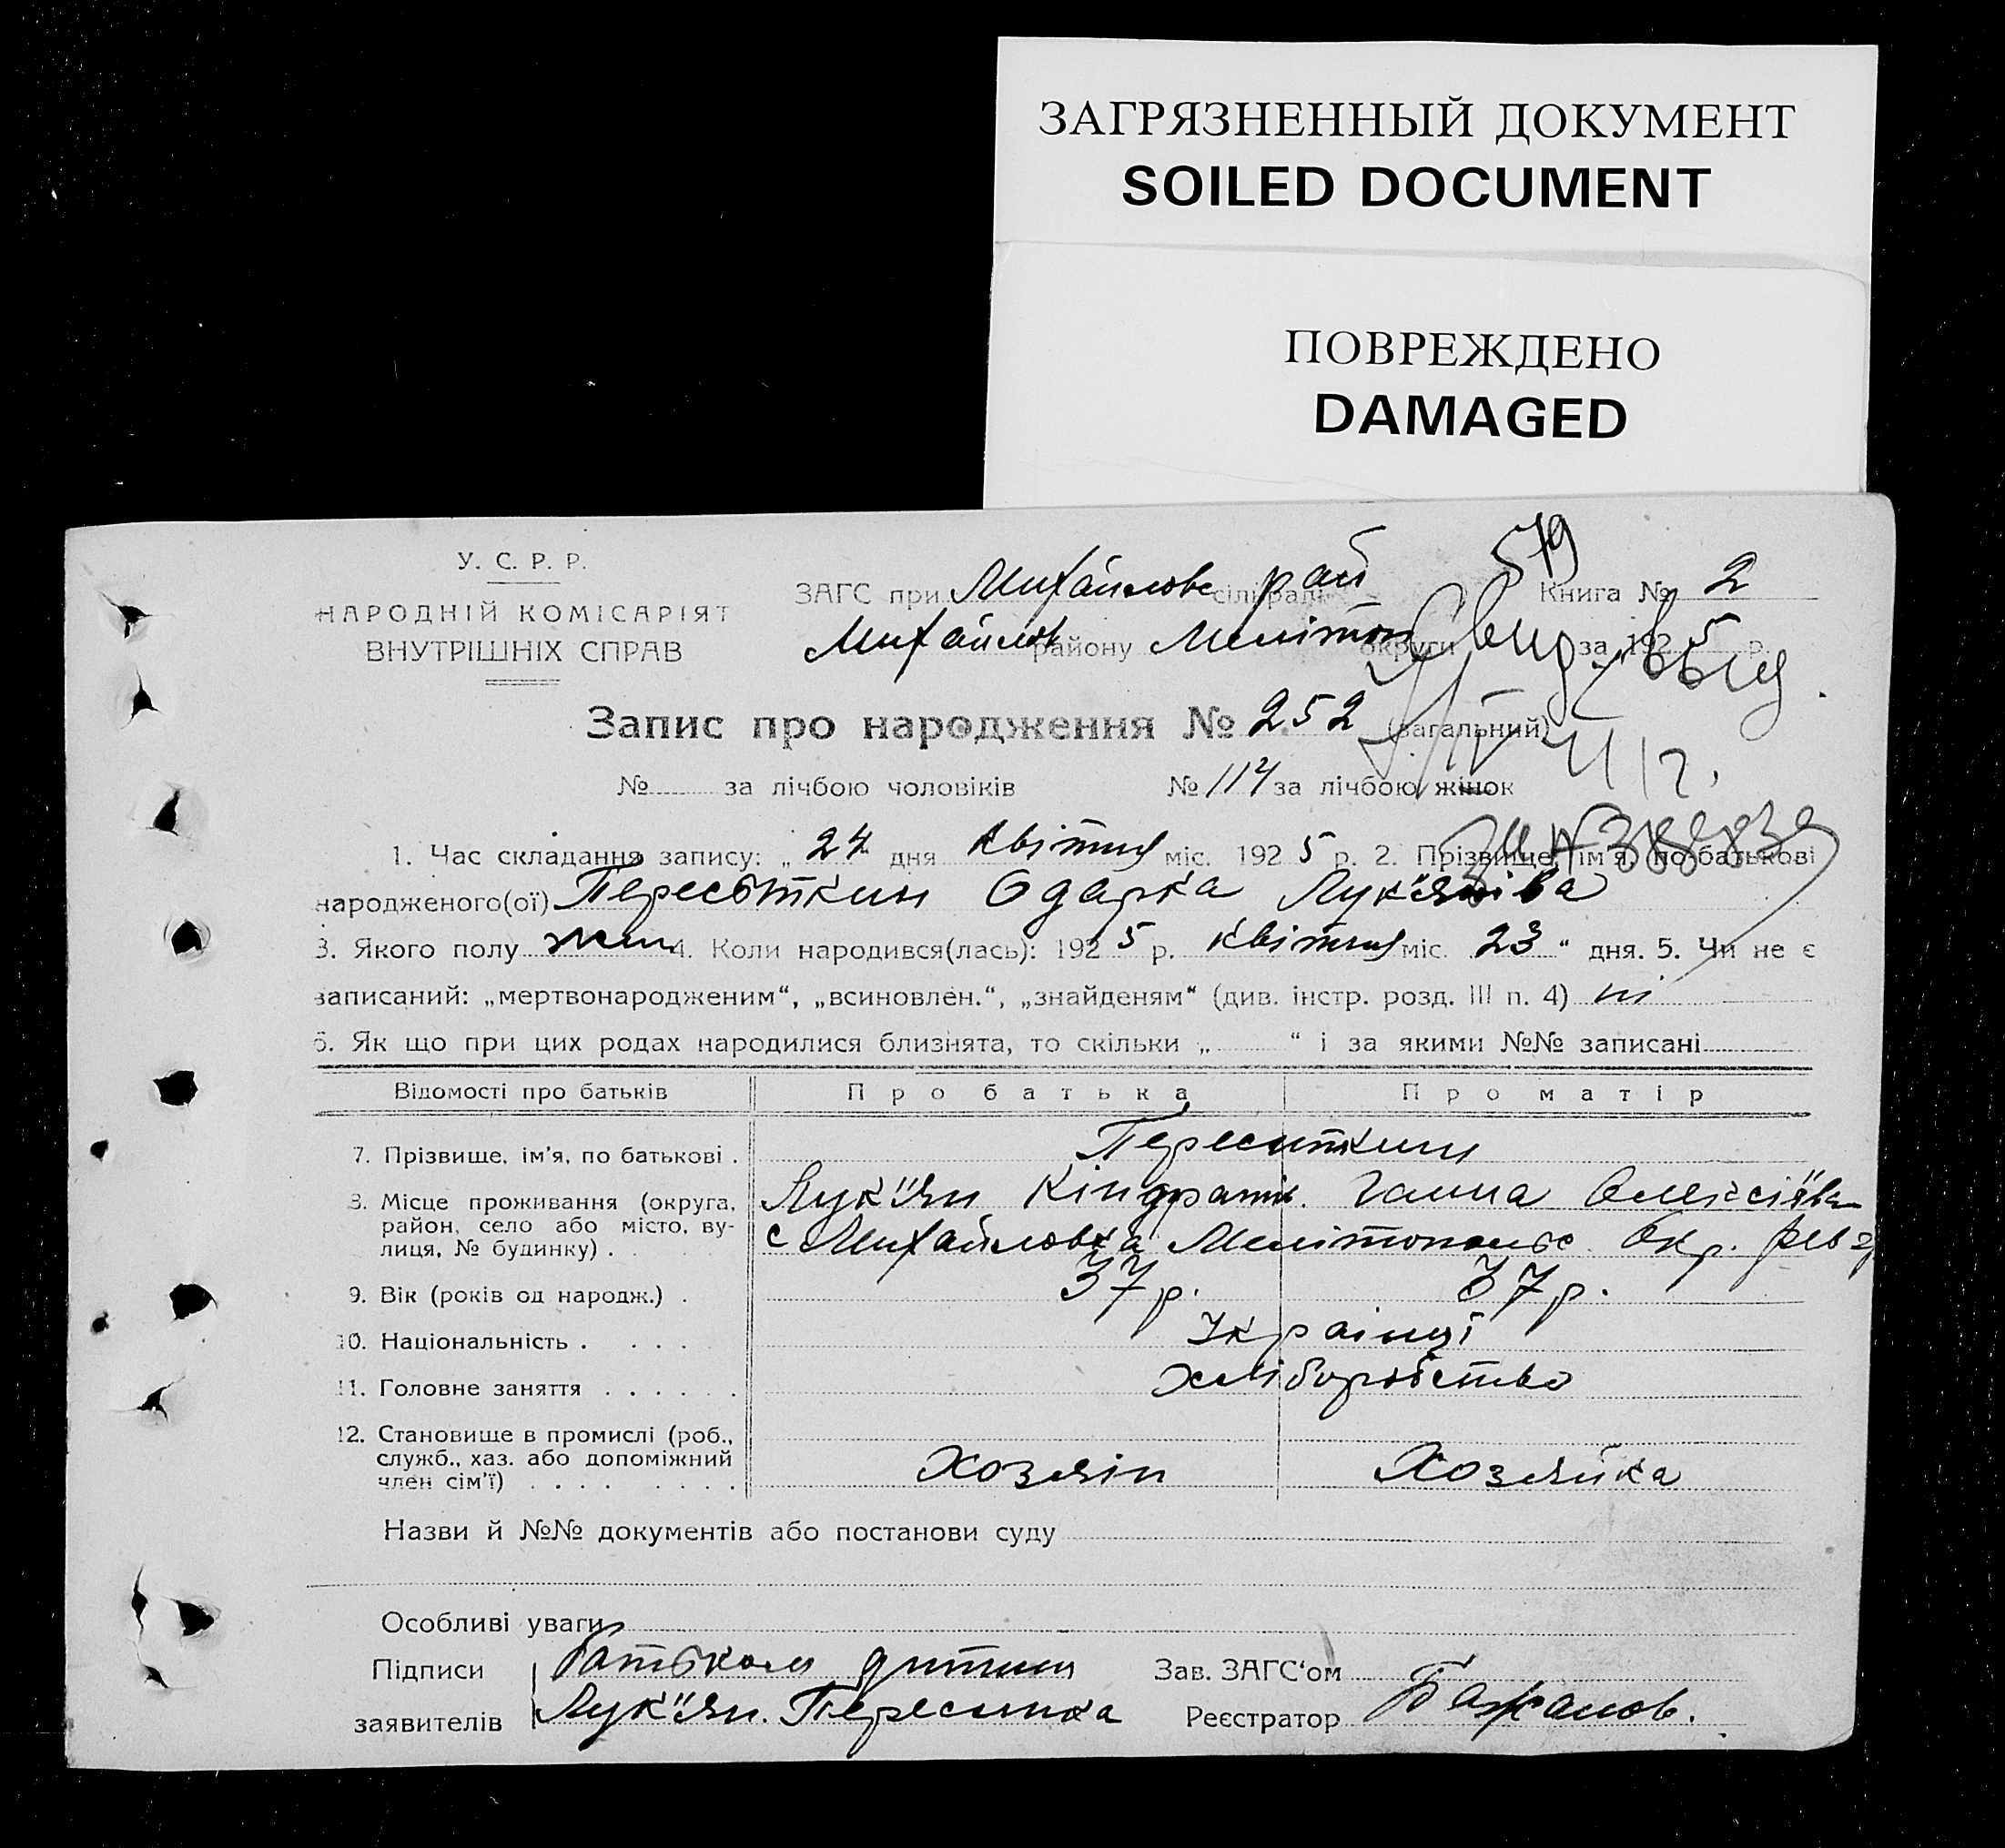 ЗАГРЯЗНЕННЫЙ ДОКУМЕНТ
SOILED DOCUMENT
ПОВРЕЖДЕНО
DAMAGED
579
У. С. Р. Р.
НАРОДНІЙ КОМІСАРІЯТ
ВНУТРІШНІХ СПРАВ
ЗАГС при Михайлове сільраді рай Книга № 2
Михайлов району Меліто округи за 1925 р.
Запис про народження № 252 (загальний)
№ за лічбою чоловіків № 114 за лічбою жінок
1. Час складання запису: „24“ дня Квітня міс. 1925 р. 2. Прізвище, ім'я, по-батькові
народженого(ої) Переситкин Одарка Лук'янівa
3. Якого полу жін 4. Коли народився(лась): 1925 р. квітня міс. 23 “ дня. 5. Чи не є
записаний: „мертвонародженим“, „всиновлен.“, „знайденям“ (див. інстр. розд. III п. 4) ні
6. Як що при цих родах народилися близнята, то скільки „ “ і за якими №№ записані
Відомості про батьків Про батька Про матір
7. Прізвище, ім'я, по батькові . Переситкин
8. Місце проживання (округа, район, село або місто, вулиця, № будинку) . Лук'ян Кіндратів. Ганна Олексіївн
с Михайловка Мелітопольс. Окр.
9. Вік (років од народж.) . 37 р. 37 р.
10. Національність . . . . Українці
11. Головне заняття . . . . . . хліборобство
12. Становище в промислі (роб., служб., хаз. або допоміжний член сім'ї) . . . . . . . . Хозяїн Хозяйка
Назви й №№ документів або постанови суду
Особливі уваги
Підписи Батьком дитини Зав. ЗАГС'ом
заявителів Лук'ян. Пересипка Реєстратор Бажанов.